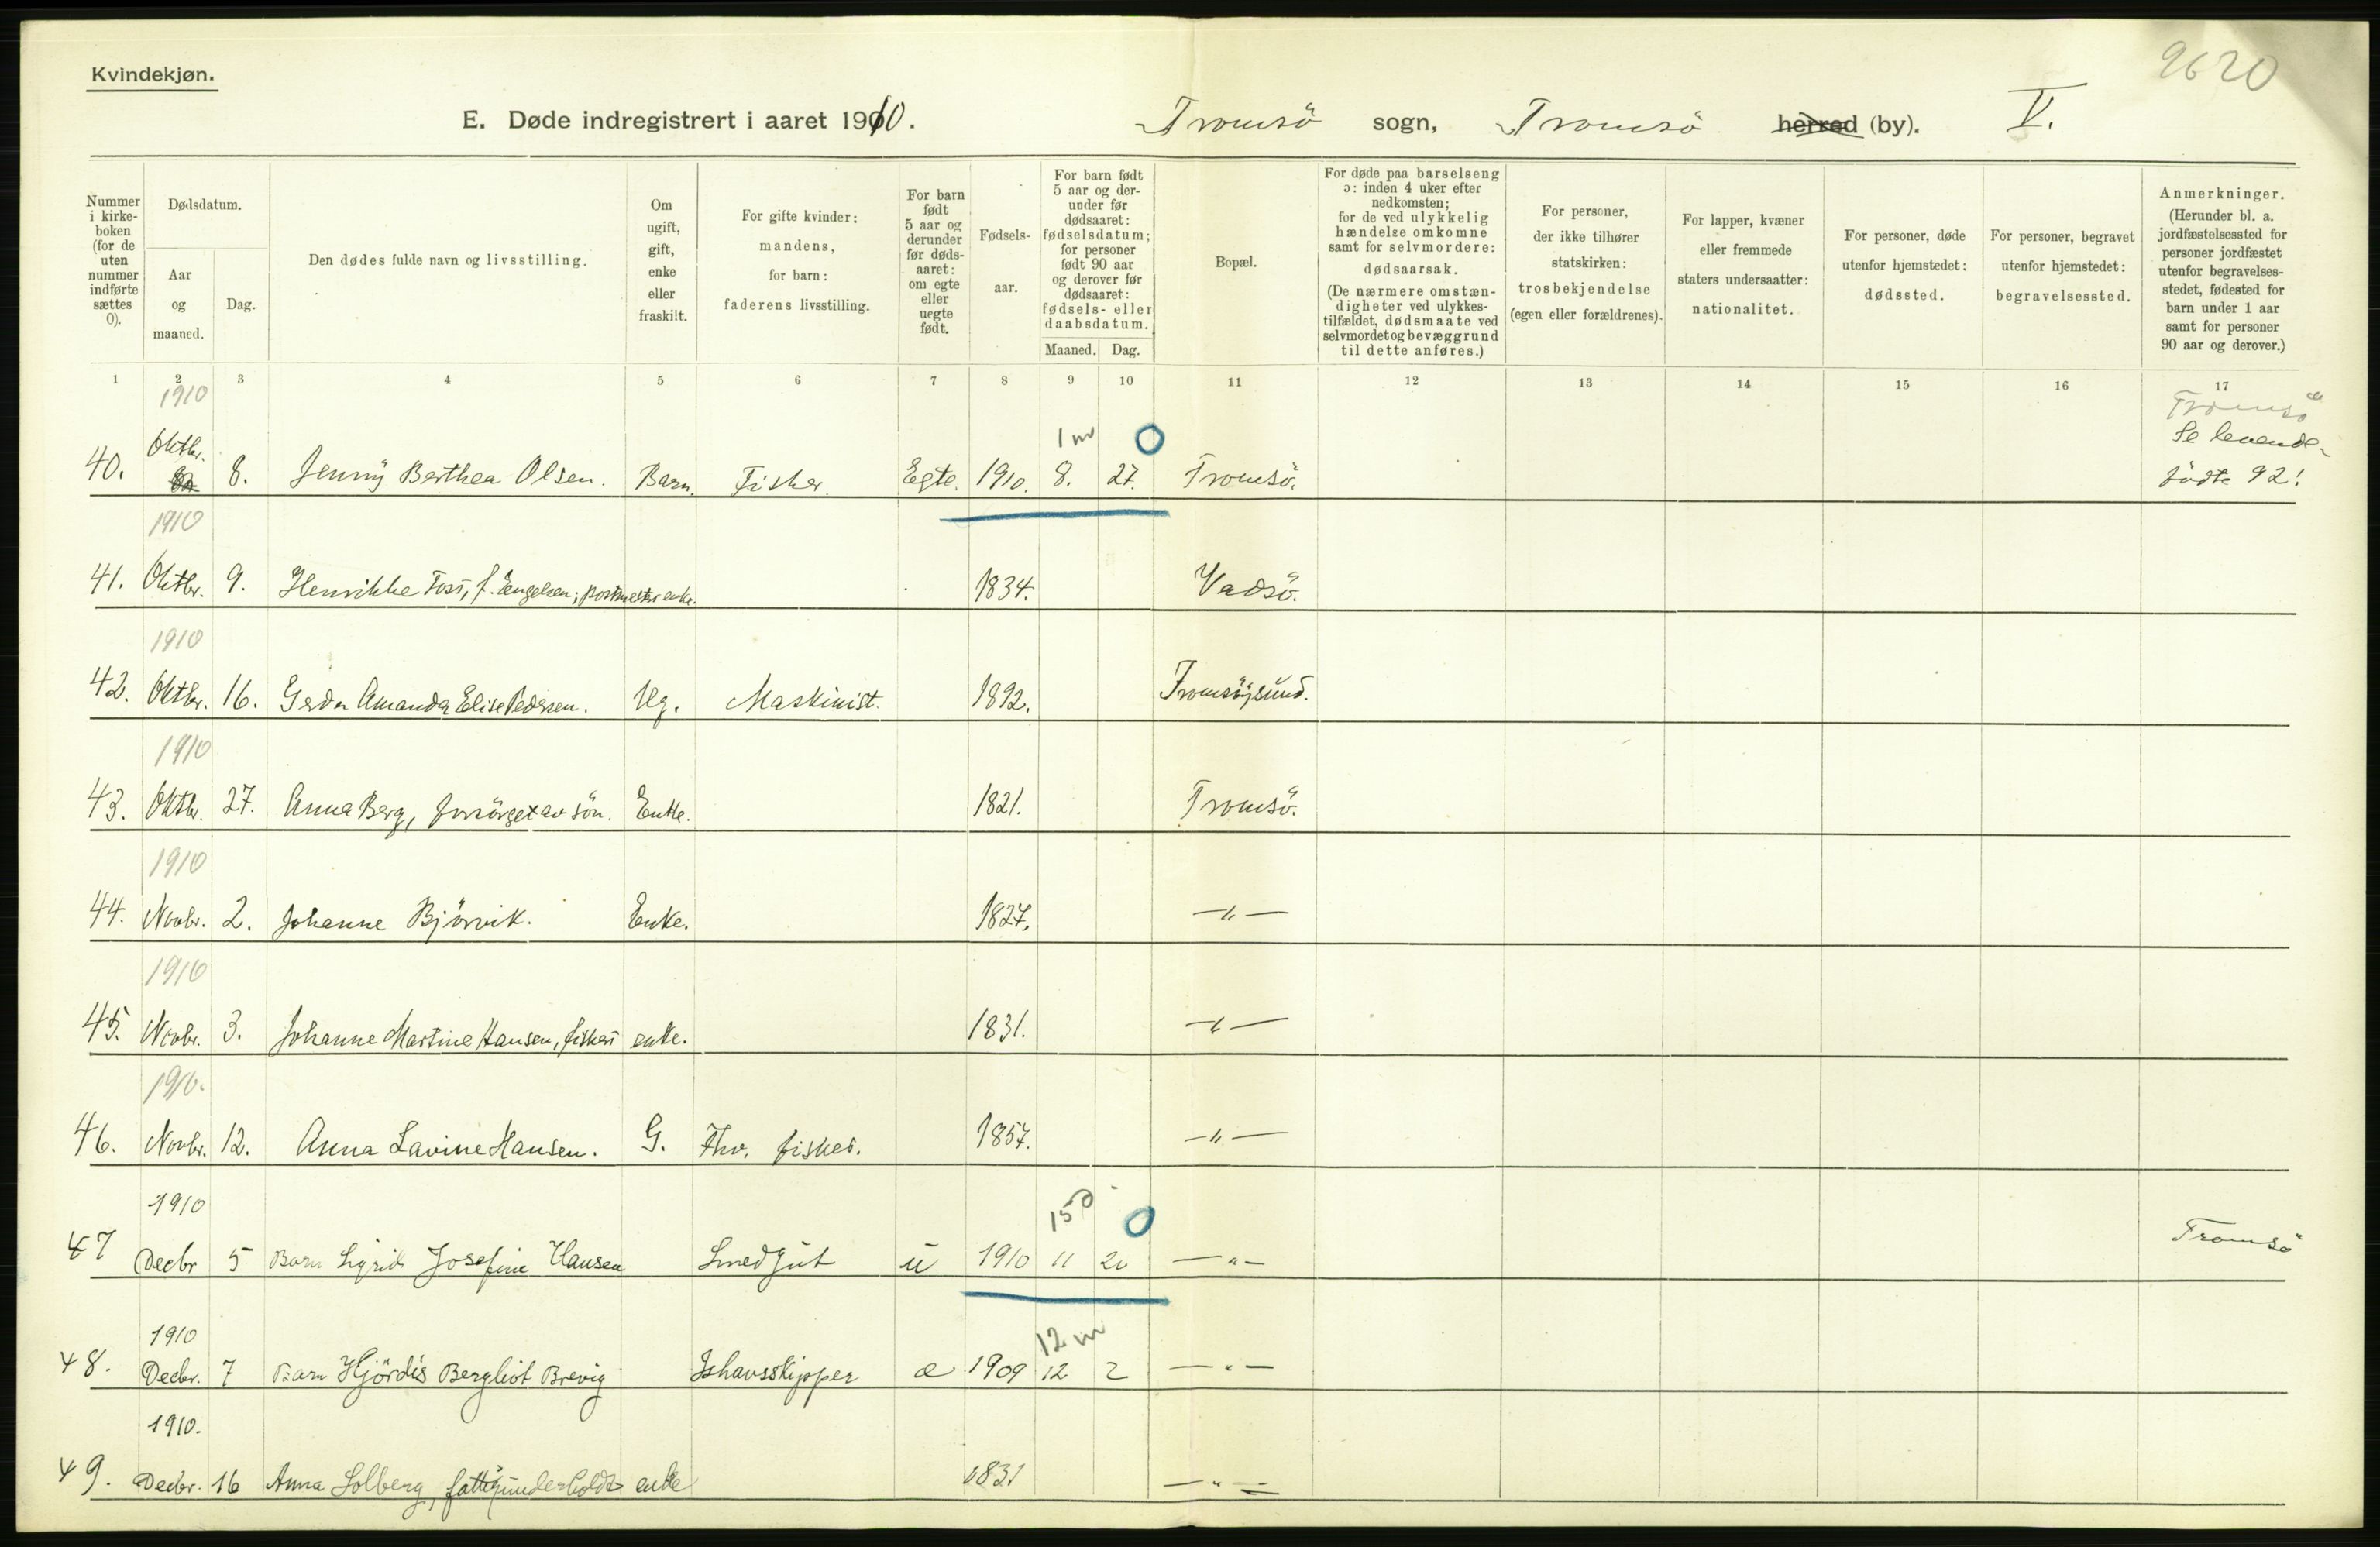 9620
Kvindekjøn.
E. Døde indregistrert i aaret 1910. Tromsö sogn, Tromsö herred (by). V.
Nummer i kirkeboken (for de uten nummer indførte sættes 0).
Dødsdatum.
Aar og maaned.
Dag.
Den dødes fulde navn og livsstilling.
Om ugift, gift, enke eller fraskilt.
For gifte kvinder: mandens, for barn: faderens livsstilling.
For barn født 5 aar og derunder før dødsaaret: om egte eller uegte født.
Fødselsaar.
For barn født 5 aar og derunder før dødsaaret: fødselsdatum; for personer født 90 aar og derover før dødsaaret: fødsels- eller daabsdatum.
Maaned. Dag.
Bopæl.
For døde paa barselseng ɔ: inden 4 uker efter nedkomsten; for de ved ulykkelig hændelse omkomne samt for selvmordere: dødsaarsak. (De nærmere omstændigheter ved ulykkestilfældet, dødsmaate ved selvmordet og bevæggrund til dette anføres.)
For personer, der ikke tilhører statskirken: trosbekjendelse (egen eller forældrenes).
For lapper, kvæner eller fremmede staters undersaatter: nationalitet.
For personer, døde utenfor hjemstedet: dødssted.
For personer, begravet utenfor hjemstedet: begravelsessted.
Anmerkninger. (Herunder bl. a. jordfæstelsessted for personer jordfæstet utenfor begravelsesstedet, fødested for barn under 1 aar samt for personer 90 aar og derover.)
1 2 3 4 5 6 7 8 9 10 11 12 13 14 15 16 17
1910 Tromsö
1 m 0 Se levende
40. Oktbr. 8. Jenny Berthea Olsen. Barn. Fisker. Egte. 1910. 8. 27. Tromsö. födte 92!
1910
41. Oktbr. 9. Henrikke Foss, f. Engelsen; postmesters enke. 1834. Vadsö.
1910
42. Oktbr. 16. Gerda Amanda Elise Pedersen. Ug. Maskinist. 1892. Tromsöysund.
1910
43. Oktbr. 27. Anna Berg, forsörget av sön. Enke. 1821. Tromsö.
1910
44. Novbr. 2. Johanne Björvik. Enke. 1827. —„—
1910
45. Novbr. 3. Johanne Martine Hansen, fiskers enke. 1831. —„—
1910.
46. Novbr. 12. Anna Lavine Hansen. G. Fhv. fisker. 1857. —„—
1910 15 d 0
47 Decbr 5 Barn Sigrid Josefine Hansen Smedgut u 1910 11 20 —„— Tromsö
1910 12 m
48. Decbr. 7 Barn Hjördis Bergliot Brevig Ishavsskipper e 1909 12 2 —„—
1910.
49. Decbr. 16 Anna Solberg, fattigunderholdt enke 1831 —„—